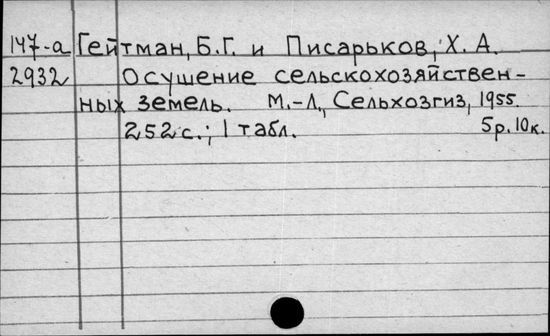 147-а Гейтман, Б.Г. и Писарьков, Х.А.
2932 Осушение сельскохозяйствен-
ных земель. М.-Л., Сельхозгиз, 1955.
252с.; 1 табл. 5р.10к.